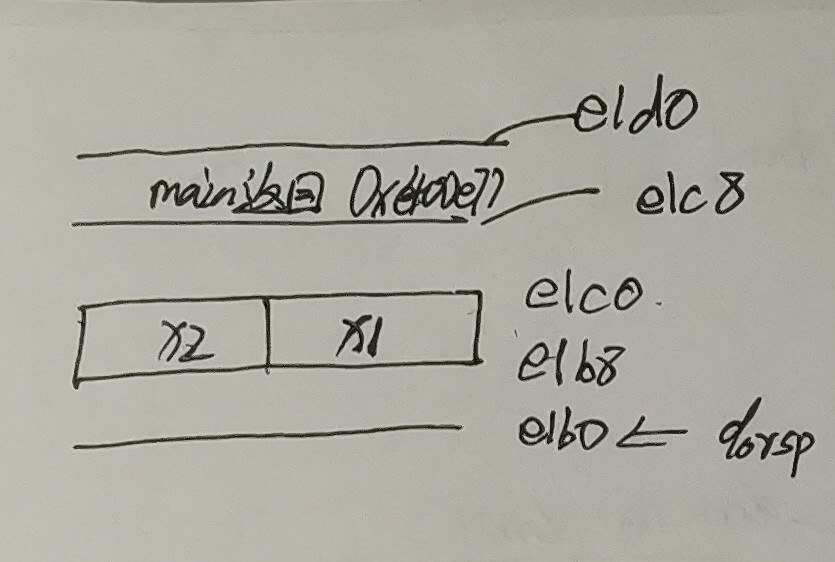 e1d0
main返回
e1c8
e1c0.
x2 x1
e1b8
e1b0 ← %rsp